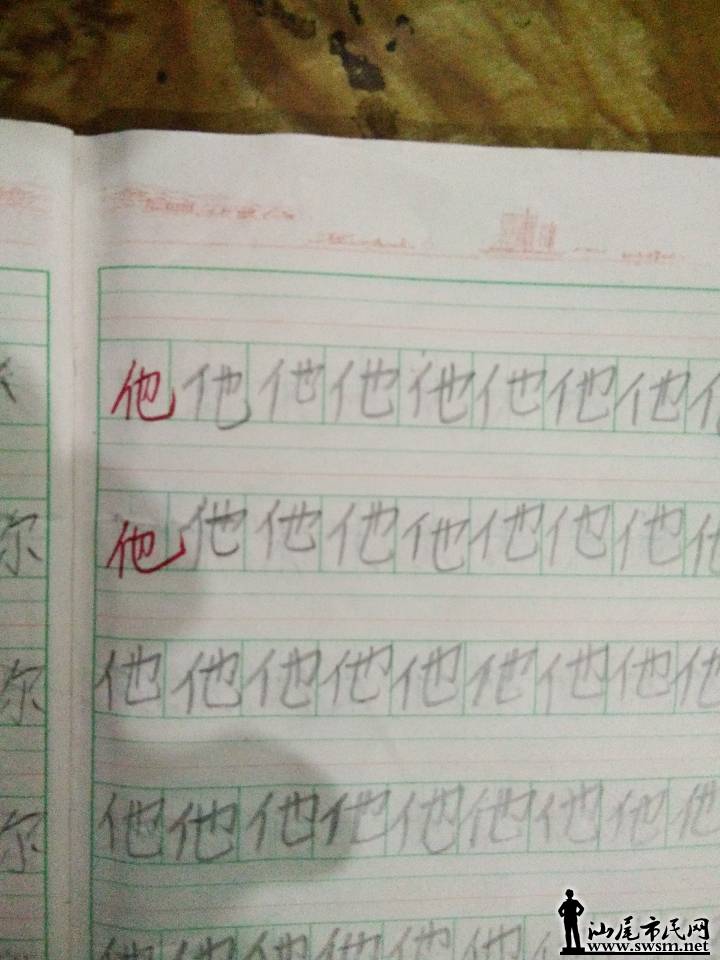 他他他他他他他他他
尔他他他他他他他他他
尔他他他他他他他他他
尔他他他他他他他他他
他他他他他他
汕尾市民网
www.swsm.net